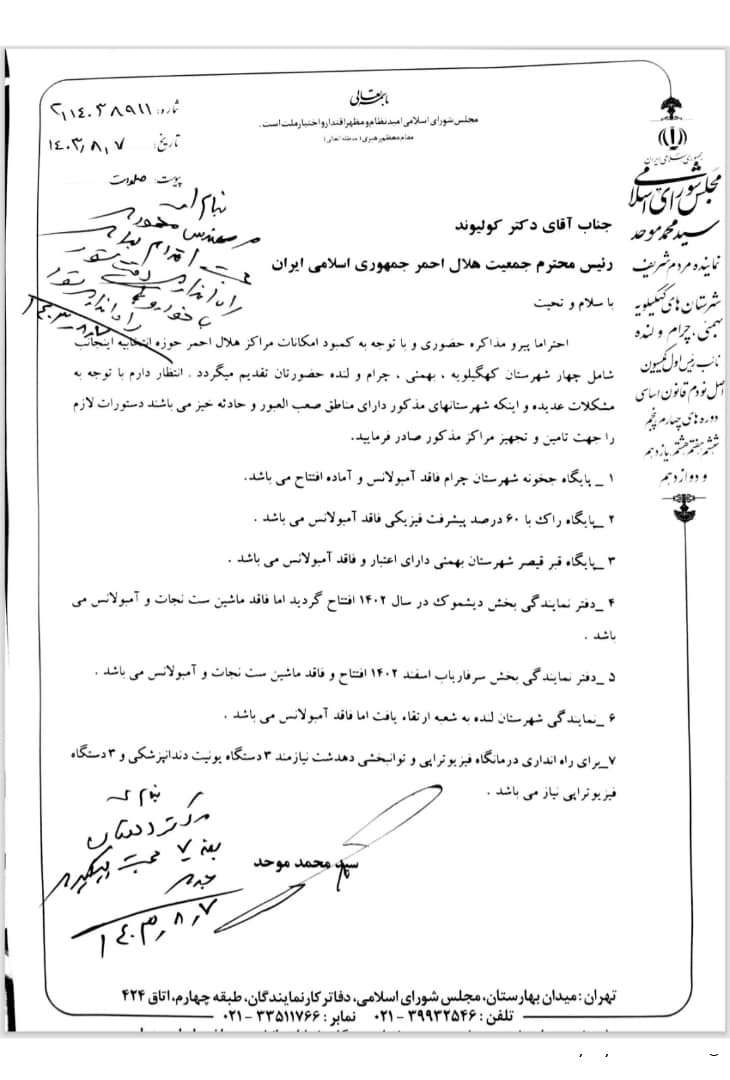 باسمه تعالی
مجلس شورای اسلامی امید نظام و مظهر اقتدار و اختیار ملت است.
مقام معظم رهبری (مدظله العالی)
شماره: ۲۱۱۴۰۳۸۹۱۱
تاریخ: ۱۴۰۳,۸,۷
پیوست:
جمهوری اسلامی ایران
مجلس شورای اسلامی
سید محمد موحد
نماینده مردم شریف
شهرستان های کهگیلویه
بهمئی، چرام و لنده
نائب رئیس اول کمیسیون
اصل نودم قانون اساسی
دوره های چهارم پنجم
ششم هفتم هشتم یازدهم
و دوازدهم
بنام خدا
مهندس
جهت اقدام برای
راه اندازی
با خودرو
راه اندازی شود
۱۴۰۳,۸
جناب آقای دکتر کولیوند
رئیس محترم جمعیت هلال احمر جمهوری اسلامی ایران
با سلام و تحیت
احتراما پیرو مذاکره حضوری و با توجه به کمبود امکانات مراکز هلال احمر حوزه انتخابیه اینجانب
شامل چهار شهرستان کهگیلویه ، بهمئی ، چرام و لنده حضورتان تقدیم میگردد . انتظار دارم با توجه به
مشکلات عدیده و اینکه شهرستانهای مذکور دارای مناطق صعب العبور و حادثه خیز می باشند دستورات لازم
را جهت تامین و تجهیز مراکز مذکور صادر فرمایید.
۱ _ پایگاه جخونه شهرستان چرام فاقد آمبولانس و آماده افتتاح می باشد.
۲ _پایگاه راک با ۶۰ درصد پیشرفت فیزیکی فاقد آمبولانس می باشد .
۳ _پایگاه قبر قیصر شهرستان بهمئی دارای اعتبار و فاقد آمبولانس می باشد .
۴ _دفتر نمایندگی بخش دیشموک در سال ۱۴۰۲ افتتاح گردید اما فاقد ماشین ست نجات و آمبولانس می
باشد .
۵ _دفتر نمایندگی بخش سرفاریاب اسفند ۱۴۰۲ افتتاح و فاقد ماشین ست نجات و آمبولانس می باشد .
۶ _نمایندگی شهرستان لنده به شعبه ارتقاء یافت اما فاقد آمبولانس می باشد .
۷_برای راه انداری درمانگاه فیزیوتراپی و توانبخشی دهدشت نیازمند ۳ دستگاه یونیت دندانپزشکی و ۳ دستگاه
فیزیوتراپی نیاز می باشد .
سید محمد موحد
دکتر دهقان
بند ۷ جهت پیگیری
۱۴۰۳,۸,۷
تهران: میدان بهارستان، مجلس شورای اسلامی، دفاتر کار نمایندگان، طبقه چهارم، اتاق ۴۲۴
تلفن: ۳۹۹۳۲۵۴۶ - ۰۲۱ نمابر: ۳۳۵۱۱۷۶۶ - ۰۲۱